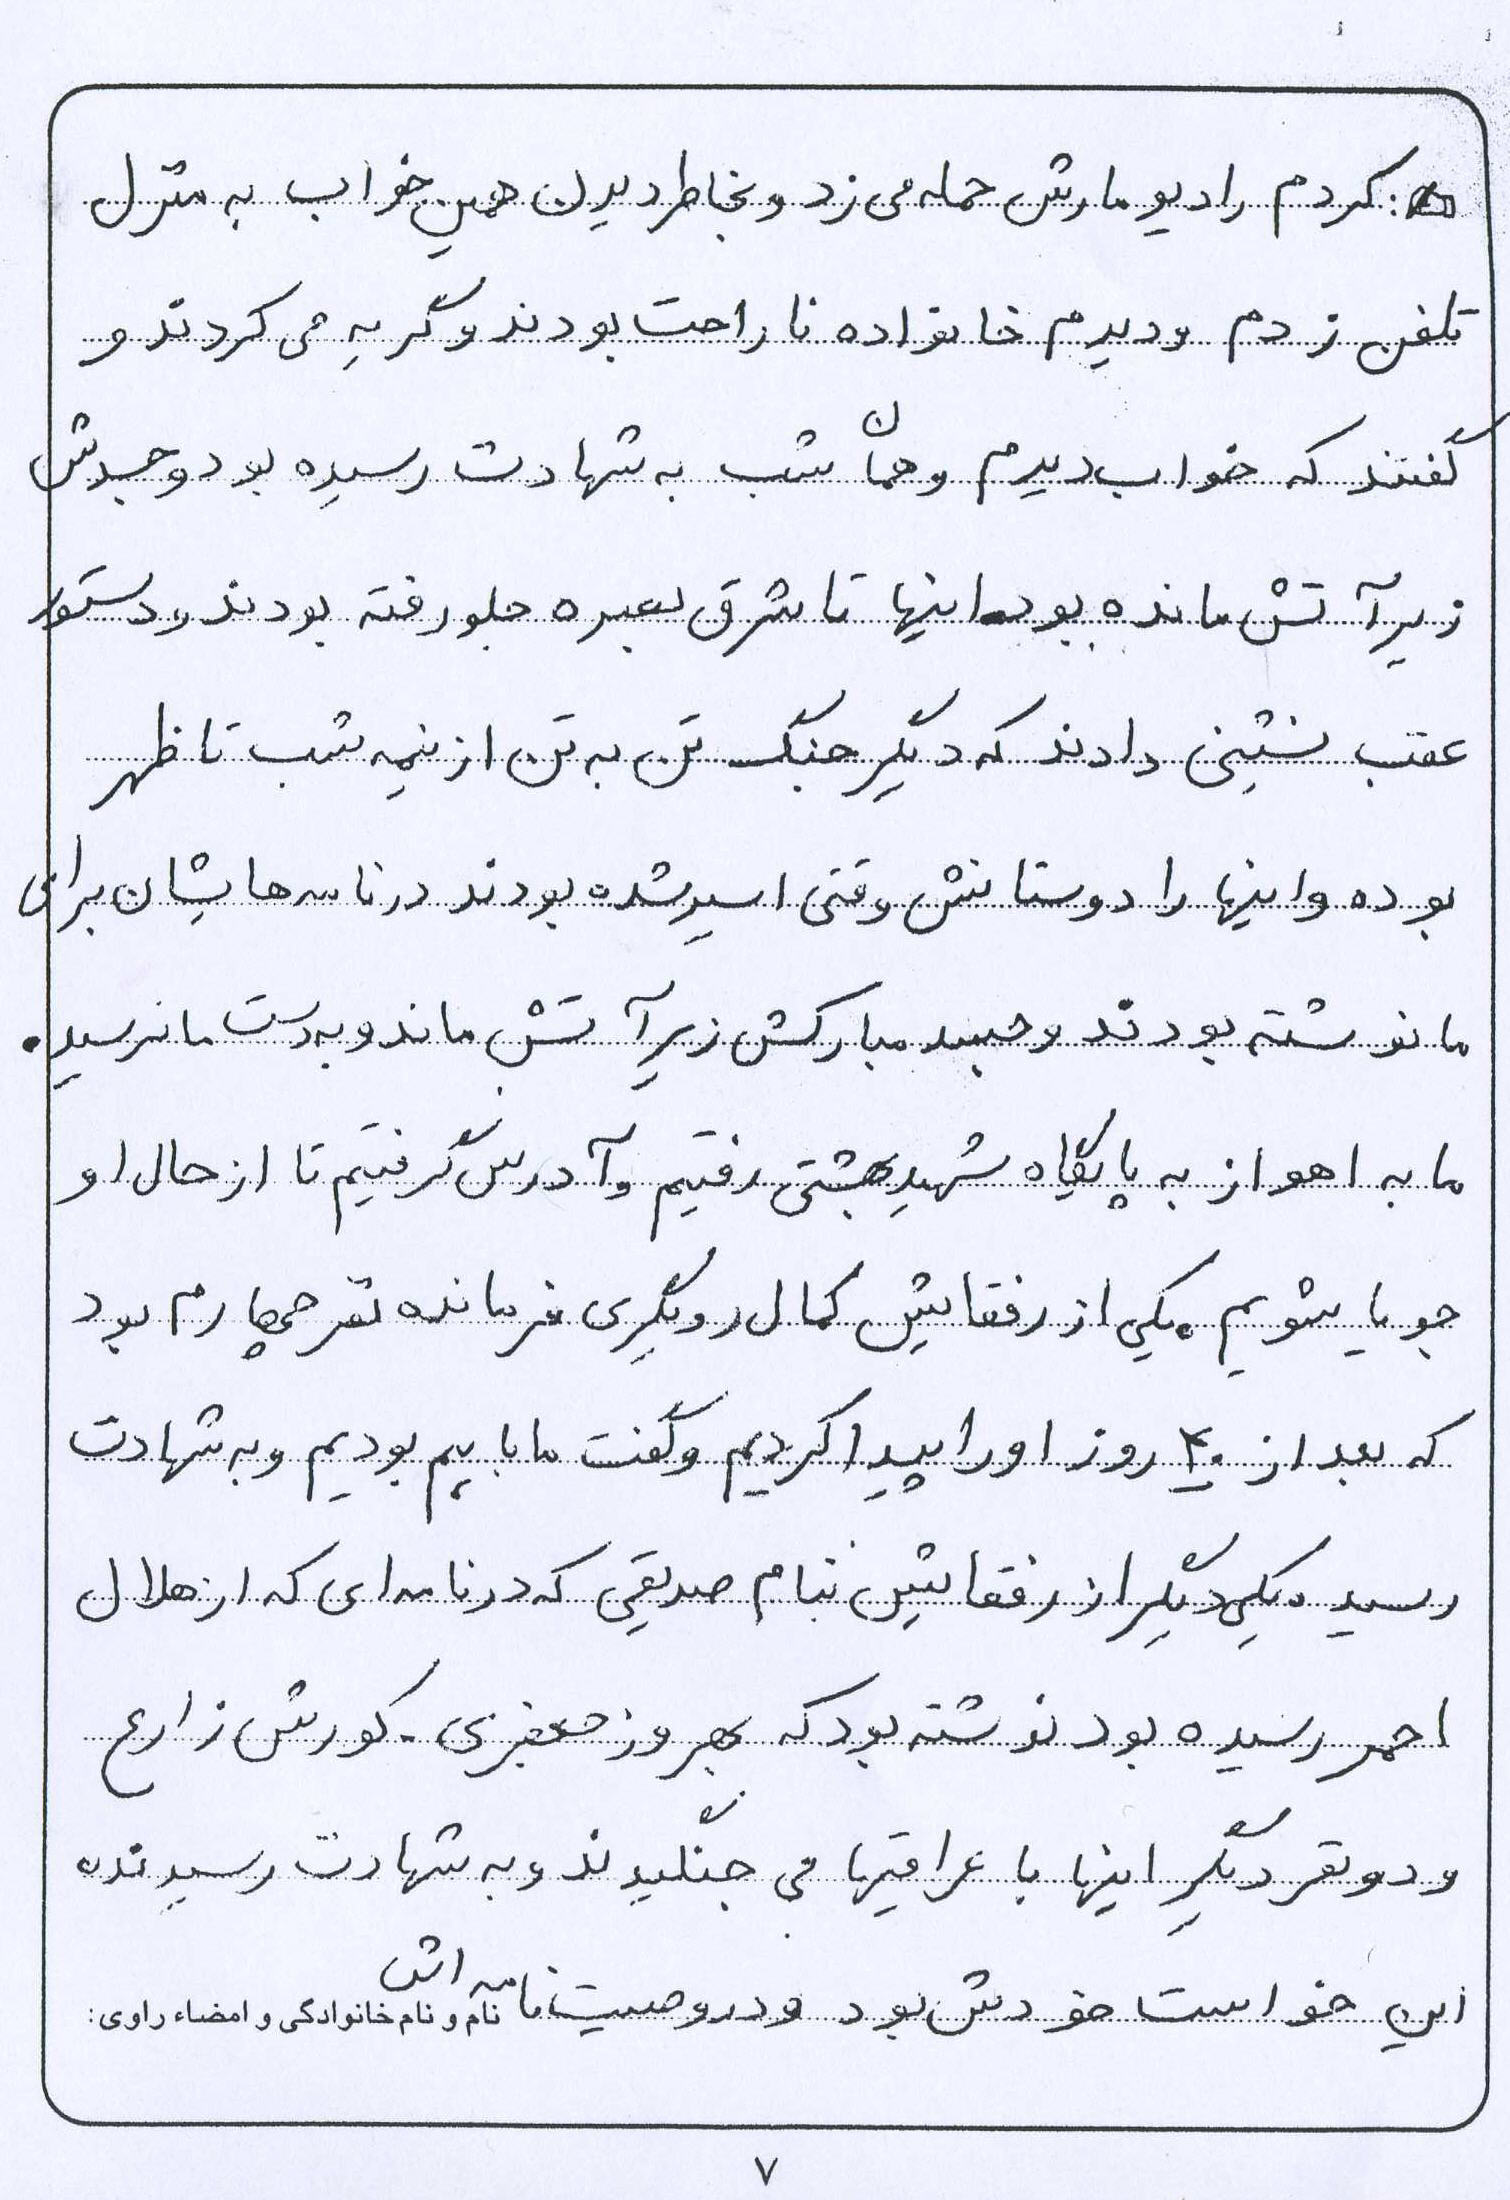 کردم رادیو مارش حمله می زد و بخاطر دیدن همین خواب به منزل
تلفن زدم و دیدم خانواده ناراحت بودند و گریه می کردند و
گفتند که خواب دیدم و همان شب به شهادت رسیده بود و جسدش
زیر آتش مانده بود. اینها تا شرق بصره جلو رفته بودند و دستور
عقب نشینی دادند که دیگر جنگ تن به تن از نیمه شب تا ظهر
بوده و اینها را دوستانش وقتی اسیر شده بودند در نامه هایشان برای
ما نوشته بودند و جسد مبارکش زیر آتش ماند و به دست ما نرسید.
ما به اهواز به پایگاه شهید بهشتی رفتیم و آدرس گرفتیم تا از حال او
جویا شویم. یکی از رفقایش کمال رویگری فرمانده نفر چهارم بود
که بعد از ۴۰ روز او را پیدا کردیم و گفت ما با هم بودیم و به شهادت
رسید. یکی دیگر از رفقایش بنام صدیقی که در نامه ای که از هلال
احمر رسیده بود نوشته بود که بهروز جعفری - کورش زارع
و دو نفر دیگر اینها با عراقیها می جنگیدند و به شهادت رسیدند.
این خواست خودش بود و در وصیت نامه اش
نام و نام خانوادگی و امضاء راوی:
۷